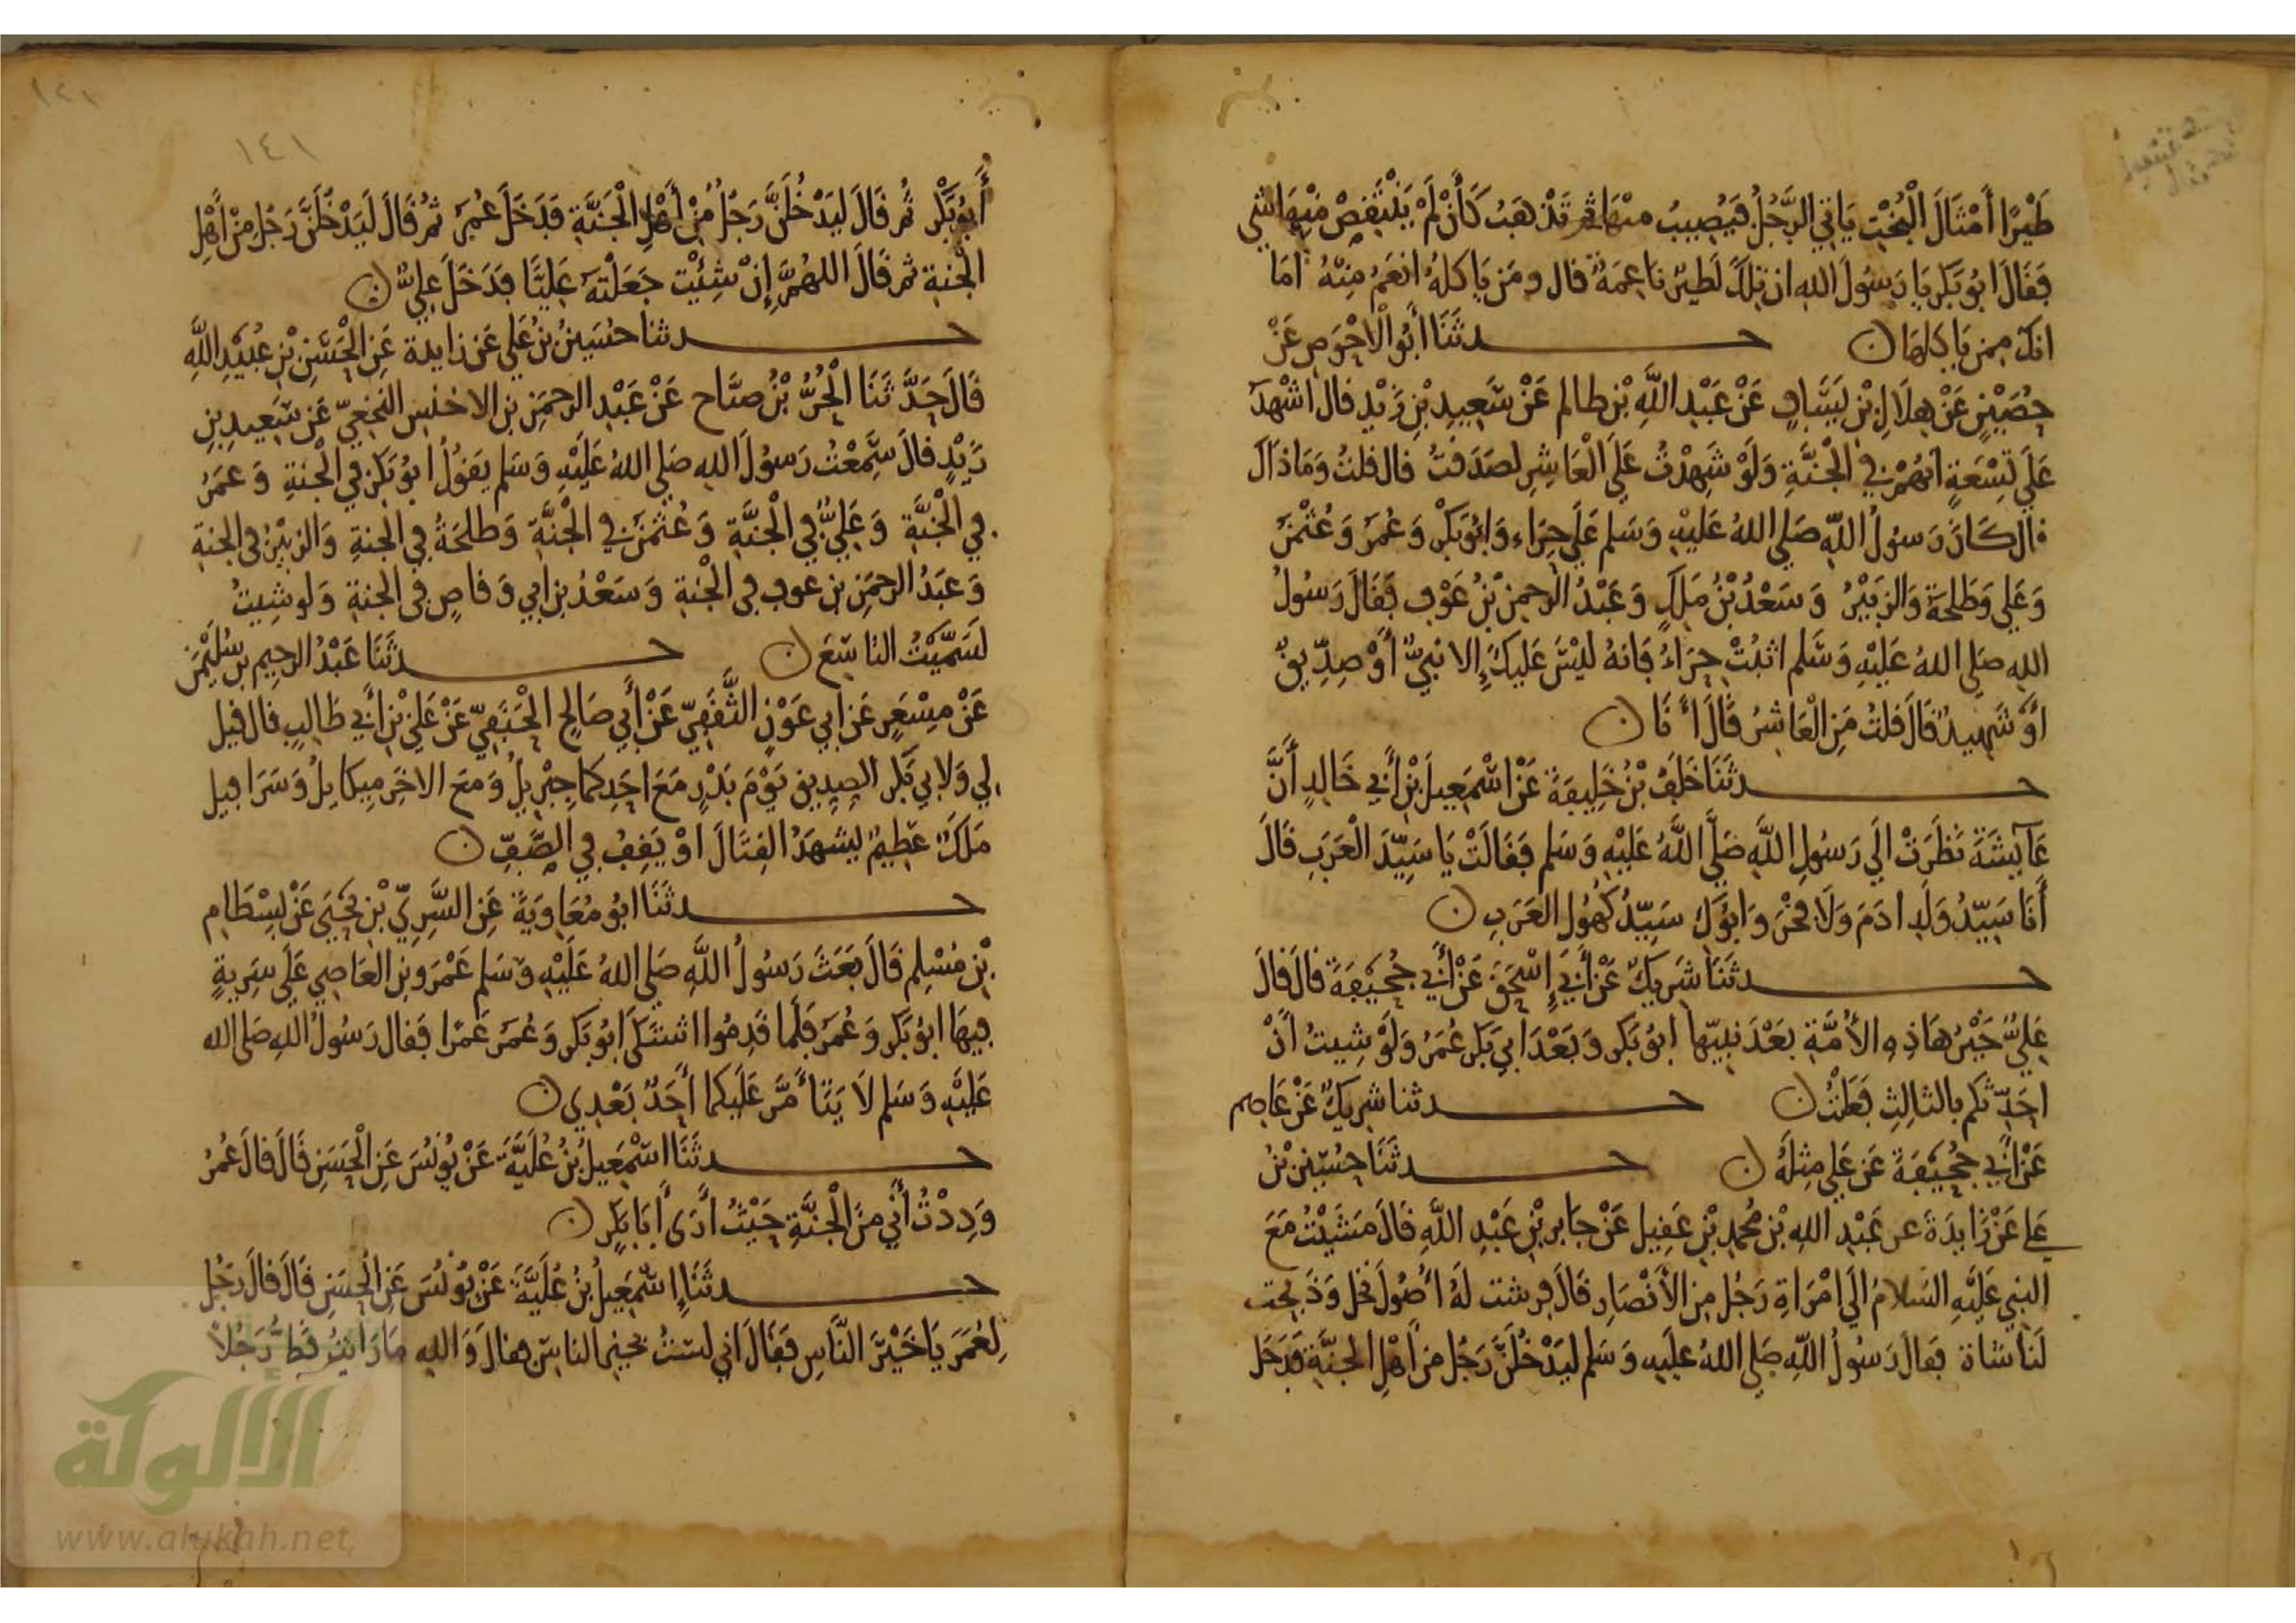 طَيْرًا أَمْثَالَ الْبُخْتِ يَاتي الرَّجُلُ فَيُصِيبُ منْهَا ثم تَذْهَبُ كَأَنْ لَمْ يَنْتَقِصْ مِنْهَا شي
فَقَالَ ابُو بَكْرٍ يَا رَسُولَ الله ان تِلْكَ لَطَيْرٌ نَاعِمَةٌ قال ومَن يَاكلُهُ انعَمُ مِنْهُ امَا
انكَ ممن يَاكلهَا ن حدثَنَا أَبُو الأحْوَصِ عَنْ
حُصَيْنٍ عَنْ هِلَالِ بْنِ يَسَافٍ عَنْ عَبْدِ اللَّهِ بْنِ ظالم عَنْ سَعِيدِ بْنِ زَيْدٍ قال اشْهَدُ
عَلَى تِسْعَةٍ انهُمْ في الْجَنَّةِ وَلَوْ شَهِدْتُ عَلَى الْعَاشِرِ لصَدَقتُ قال قلتُ وَمَا ذَاكَ
قال كَانَ رَسُولُ اللَّهِ صَلى اللهُ عَلَيْهِ وَسَلم عَلَى حِرَاءٍ وَابُو بَكْرٍ وَعُمَرُ وَعُثْمٰنُ
وَعَلي وَطَلحَةُ وَالزبَيْرُ وَسَعْدُ بْنُ مَلِكٍ وَعَبْدُ الرحمنِ بْنُ عَوْفٍ فَقَالَ رَسُولُ
الله صَلى اللهُ عَلَيْهِ وَسَلم اثبُتْ حِرَاءُ فَانهُ لَيْسَ عَليكَ إِلا نبيٌّ أَوْ صِدِّيقٌ
اوْ شَهِيدٌ قَالَ قلتُ مَنِ الْعَاشِرُ قَالَ أَنَا ن
حدثَنَا خَلَفُ بْنُ خَلِيفَةَ عَنْ اسْمَعِيلَ بْنِ أَبي خَالِدٍ أَنَّ
عَآيشَةَ نَظَرَتْ الَى رَسُولِ اللَّهِ صَلَّى اللَّهُ عَلَيْهِ وَسَلم فَقَالَتْ يَا سَيِّدَ الْعَرَبِ قَالَ
أَنَا سَيِّدُ وَلَدِ ادَمَ وَلَا فَخْرَ وَابُوكِ سَيِّدُ كُهُولِ العَرَبِ ن
حدثَنَا شَرِيكٌ عَنْ أَبي إِسْحَقَ عَنْ أَبي جُحَيْفَةَ قَالَ قالَ
عَلِيٌّ خَيْرُ هَاذِهِ الأمَّةِ بَعْدَ نَبِيّهَا ابُو بَكرٍ وَبَعْدَ ابي بَكرٍ عُمَرُ وَلَوْ شِيتُ انْ
احَدِّثكم بالثالِثِ فَعَلتُ ن حدثنا شرِيكٌ عَنْ عَاصم
عَنْ ابي جُحَيْفَةَ عَن عَلي مِثلَهُ ن حدثَنَا حُسَيْن بْنُ
عَلي عَنْ زَايدَةَ عن عَبْدِ اللهِ بْنِ مُحمدِ بْنِ عَقِيلٍ عَنْ جَابرِ بْنِ عَبْدِ اللَّهِ قَالَ مَشَيْتُ مَعَ
النبي عَلَيْهِ السَّلامُ الَى امْرَاةِ رَجُلٍ مِن الأَنْصَارِ قَالَ فرشت لَهُ أُصُولَ نخلٍ وَذَبحت
لَنَا شَاةً فقالَ رَسُولُ اللَّهِ صَلى اللهُ عَليهِ وَسَلم ليَدْخُلَنَّ رَجُل من أَهْلِ الجنَّةِ فَدَخَلَ
١٤١
أَبُو بَكْرٍ ثُم قَالَ لَيَدْخُلَنَّ رَجُلٌ مِنْ أَهْلِ الْجَنَّةِ فَدَخَلَ عُمَرُ ثمُ قَالَ لَيَدْخُلَنَّ رَجُل مِنْ أَهْلِ
الْجنةِ ثم قَالَ اللهُمَّ إِنْ شِئْتَ جَعَلْتَهُ عَلِيًّا فدَخَلَ عليٌّ ن
حدثنا حُسَيْنُ بْنُ عَلي عَن زايدة عَنِ الْحَسَنِ بْنِ عُبَيْدِ اللَّهِ
قَالَ حَدَّثَنَا الْحُرُّ بْنُ صيَّاح عَنْ عَبْدِ الرحمَنِ بن الاخنَسِ النخَعِيّ عَن سَعِيدِ بنِ
زَيْدٍ قالَ سَمِعْتُ رَسُولَ اللهِ صَلى اللهُ عَلَيْهِ وَسَلم يَقُولُ ابُو بَكْرٍ في الْجنةِ وَعمَرُ
في الْجَنَّةِ وَعَلِيٌّ في الْجَنَّةِ وَعُثمٰنُ في الْجَنَّةِ وَطلحَةُ في الْجنةِ وَالزبيْرُ في الجنةِ
وَعَبْدُ الرحمَنِ بن عوفٍ في الْجَنةِ وَسَعْدُ بن ابي وَقاصٍ في الجنةِ وَلو شِيتُ
لَسَمَّيْتُ التاسَعَ ن حدثَنَا عَبْدُ الرحِيمِ بن سُلَيْمٰنَ
عَنْ مِسْعَرٍ عَن ابي عَوْنٍ الثَّقَفِيّ عَنْ أَبي صَالحٍ الْحَنَفِيّ عَنْ عَلِيّ بْنِ أَبي طَالبٍ قال قيل
لي وَلابي بَكْرٍ الصِدِيق يَوْمَ بَدْرٍ مَعَ احَدِكما جِبْريلُ وَمعَ الاخَرِ مِيكايلُ وَسَرَافيل
مَلَكٌ عَظِيمٌ يشهَدُ القِتَالَ اوْ يَقِفُ في الصَّفِّ ن
حدثَنَا ابُو مُعَاوِيَةَ عَنِ السَّرِيّ بْنِ يَحْيَى عَنْ بِسْطَامِ
بْنِ مُسْلِمٍ قَالَ بَعَثَ رَسُولُ اللَّهِ صَلى اللهُ عَلَيْهِ وَسَلم عَمْرَو بن العَاصِي عَلَى سَرِيةٍ
فِيهَا ابُو بَكرٍ وَعُمَرُ فَلَما قَدِمُوا اشتَكَى ابُو بَكرٍ وَعُمَرُ عَمْرًا فَقال رَسُولُ اللهِ صَلى الله
عَلَيْهِ وَسَلم لَا يَتَأَمَّرُ عَلَيكما أَحَدٌ بَعْدِي ن
حدثَنَا اسْمَعِيلُ بْنُ عُلَيَّةَ عَنْ يُونُسَ عَنِ الْحَسَنِ قَالَ قالَ عُمَرُ
وَدِدْتُ أَنِّي منَ الْجَنَّةِ حَيْثُ أَرَى أَبَا بَكْرٍ ن
حدثَنَا إِسْمَعِيلُ بْنُ عُلَيَّةَ عَنْ يُونُسَ عَنِ الْحَسَنِ قَالَ قالَ رَجُل
لِعُمَرَ يَا خَيْرَ النَّاسِ فَقَالَ اني لَسْتُ بخيرِ الناسِ فقالَ وَاللهِ مَا رَأَيْتُ قَطُّ رَجُلاً
الألوكة
www.alukah.net